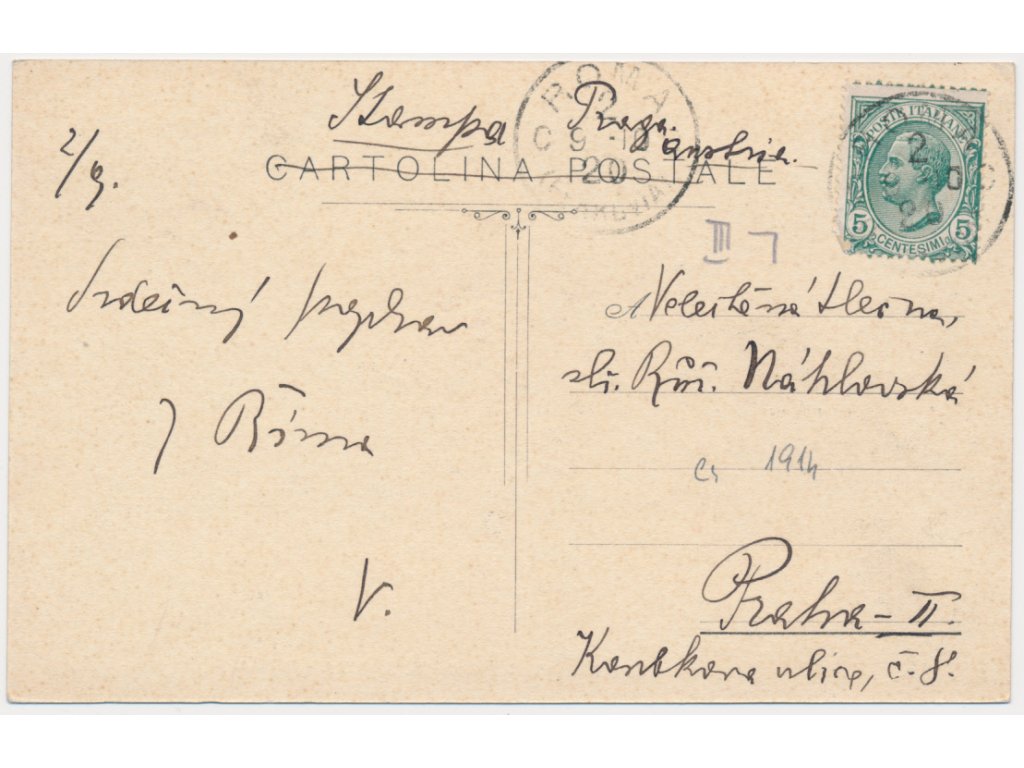 Stampa Praga. Austria.
CARTOLINA POSTALE
2/9.
ROMA
9-10
20
FERROVIA
POSTE ITALIANE
5 CENTESIMI 5
III 7
Srdečný pozdrav
z Říma
V.
Velectěná slečna,
sl. Růž. Náhlovská
1914
Praha-II.
ulice, č. 8.